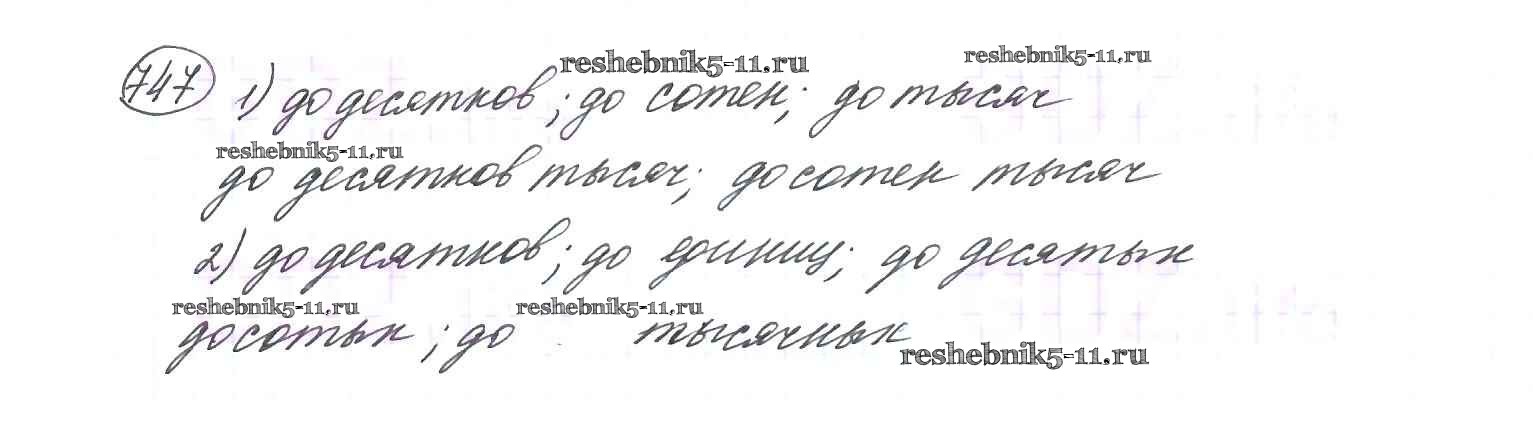 reshebnik5-11.ru reshebnik5-11.ru
747 1) до десятков; до сотен; до тысяч
reshebnik5-11.ru
до десятков тысяч; до сотен тысяч
2) до десятков; до единиц; до десятых
reshebnik5-11.ru reshebnik5-11.ru
до сотых; до тысячных
reshebnik5-11.ru